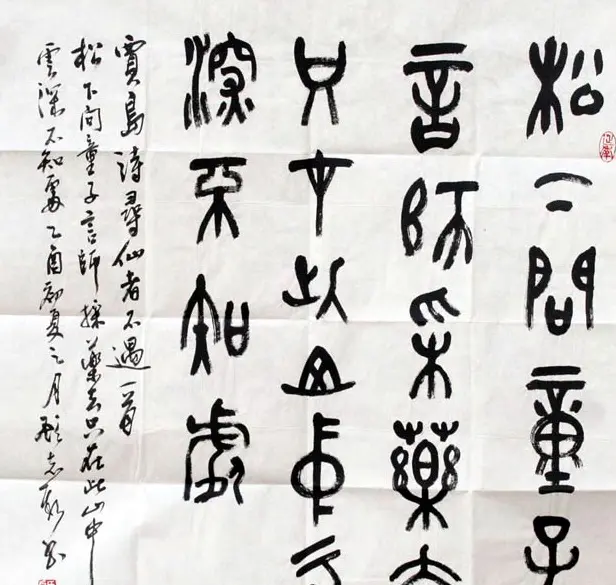 松下問童子
言師采藥去
只在此山中云
深不知處
賈島詩尋仙者不遇一首
松下问童子言師採藥去只在此山中
雲深不知處乙酉初夏之月